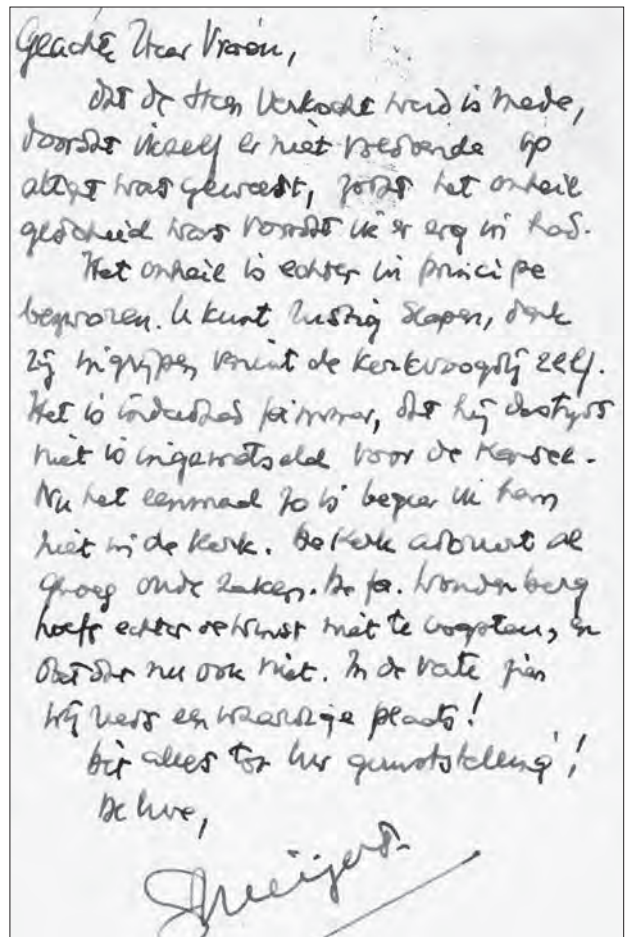 Geachte Heer Vroom,
dat de steen verkocht werd is mede,
doordat ikzelf er niet voldoende op
attent was geweest, zodat het onheil
geschied was voordat ik er erg in had.
Het onheil is echter in principe
bezworen. U kunt rustig slapen, dank
zij ingrijpen vanuit de kerkvoogdij zelf.
Het is inderdaad jammer, dat hij destijds
niet is ingemetseld voor de kansel.
Nu het eenmaal zo is begeer ik hem
niet in de kerk. De kerk absorbeert al
genoeg oude zaken. De fa.
hoeft echter de winst niet te opstrijken, en
doet dat nu ook niet. In de
wij weer een waardige plaats!
Dit alles tot Uw geruststelling!